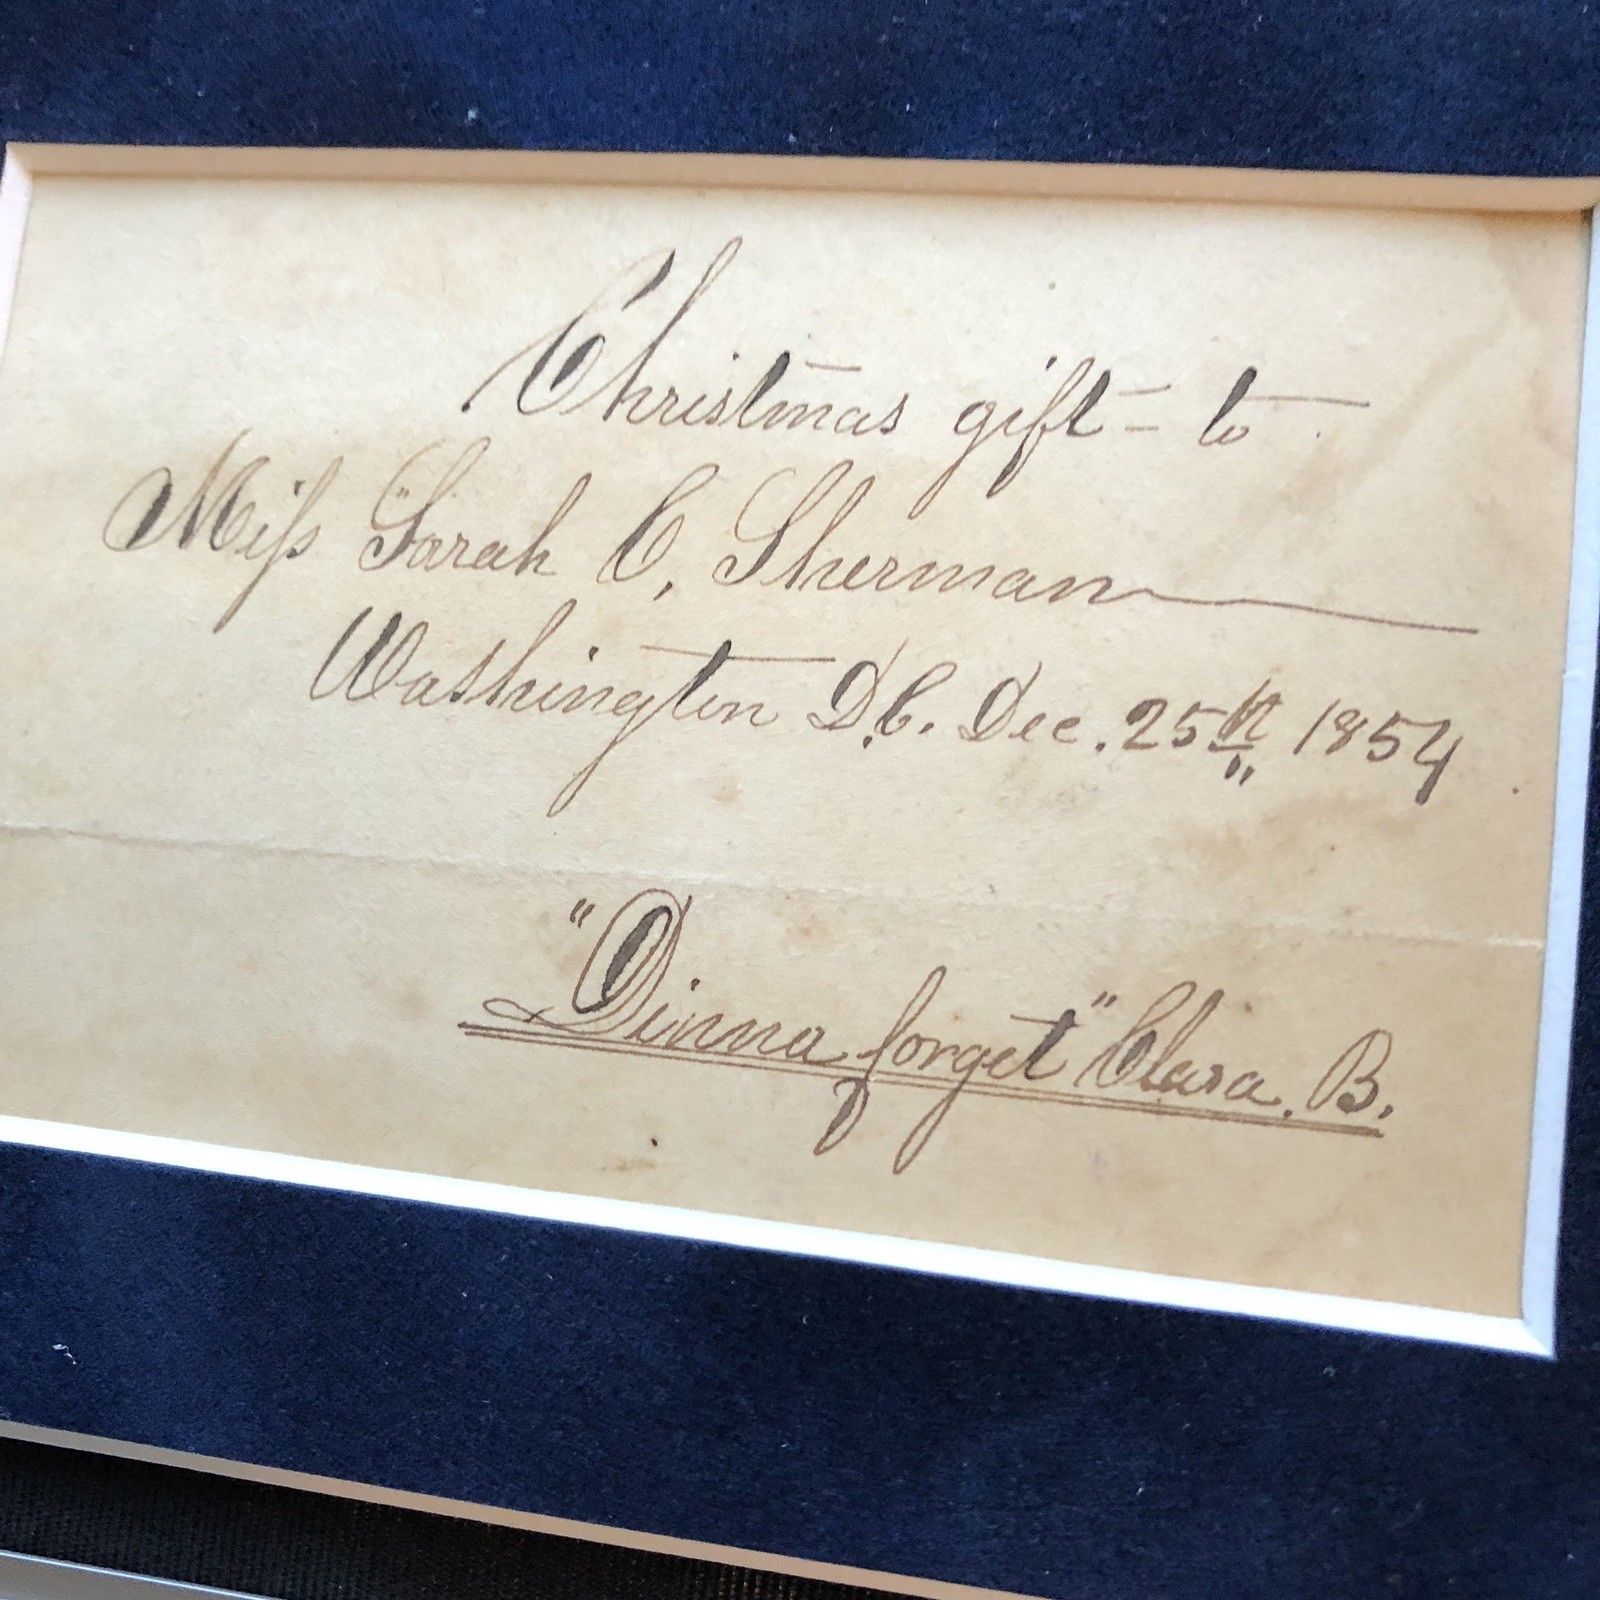 Christmas gift - to
Miss Sarah C. Sherman
Washington D.C. Dec. 25th 1854
"Dinna forget" Clara. B.